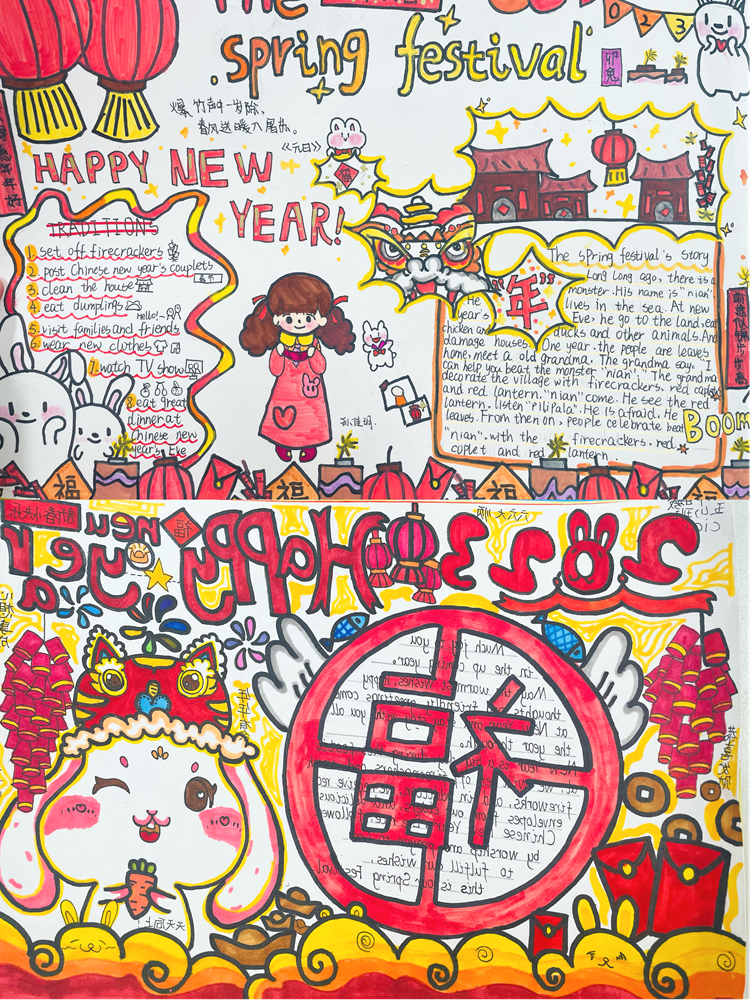 The
spring festival
2023
卯兔
爆竹声中一岁除,
春风送暖入屠苏.
《元日》
HAPPY NEW
YEAR!
福
TRADITIONS
1. set off firecrackers
2. post Chinese new year's couplets
3. clean the house
4. eat dumplings
Hello!
5. visit families and friends
6. wear new clothes
7. watch TV show
8. eat great
dinner at
Chinese new
year's Eve
The spring festival's story
Long Long ago, there is a
monster. His name is "nian"
lives in the sea. At new
year's Eve, he go to the land, eat
chicken and ducks and other animals. And
damage houses. One year, the people are leaves
home, meet a old grandma. The grandma say: "I
can help you beat the monster "nian". The grandma
decorate the village with firecrackers, red caplet
and red lantern. "nian" come. He see the red
lantern, listen "Pilipala". He is afraid, He
leaves. From then on, people celebrate beat
"nian" with the firecrackers, red
coplet and red lantern.
"年"
BOOM
福
福
福
2023
Happy
new
year
福
新春快乐
六六大顺
Much joy to you
in the up coming year.
May warmest wishes, happy
thoughts and friendly greetings come
at New Year and stay with you all
the year through.
福
fireworks, and
envelopes from our elders
Chinese New Year
by worship and
to fulfill our wishes.
this is our Spring Festival
天天向上!